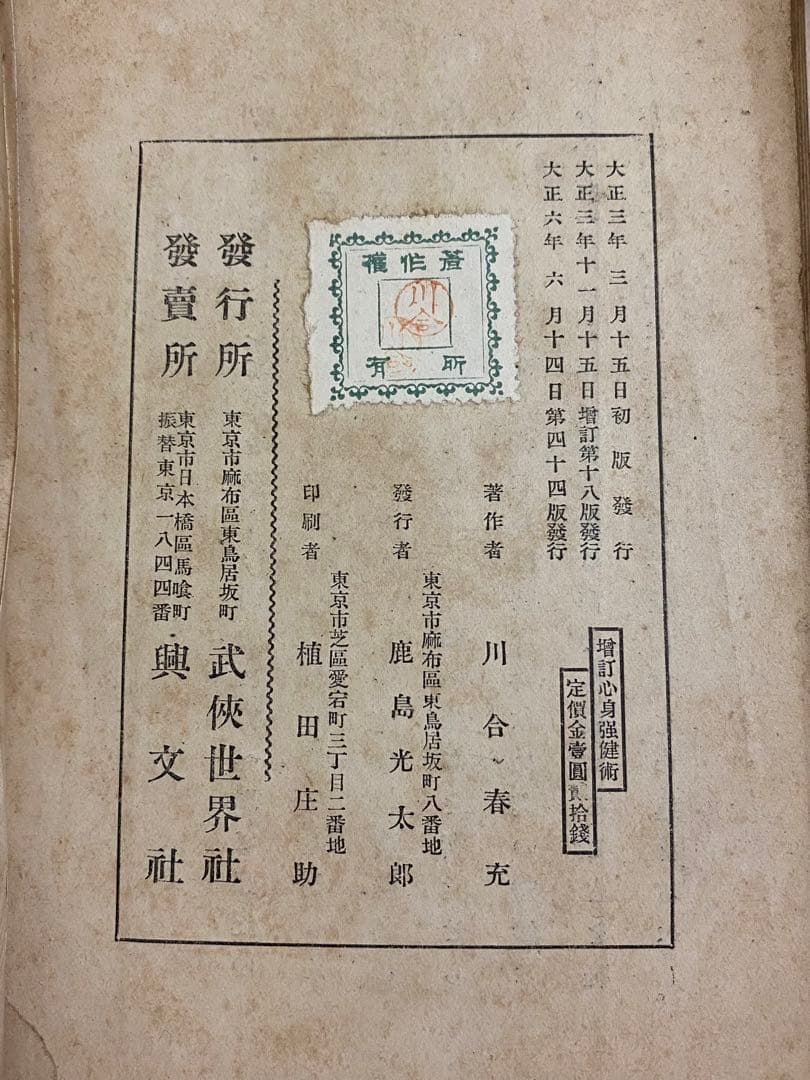 大正三年三月十五日初版發行
大正三年十一月十五日增訂第十八版發行
大正六年六月十四日第四十四版發行
增訂心身强健術
定價金壹圓貳拾錢
著作權
川合
所有
著作者 川合春充
東京市麻布區東鳥居坂町八番地
發行者 鹿島光太郎
東京市芝區愛宕町三丁目二番地
印刷者 植田庄助
發行所 東京市麻布區東鳥居坂町 武俠世界社
發賣所 東京市日本橋區馬喰町 振替東京一八四四番 興文社